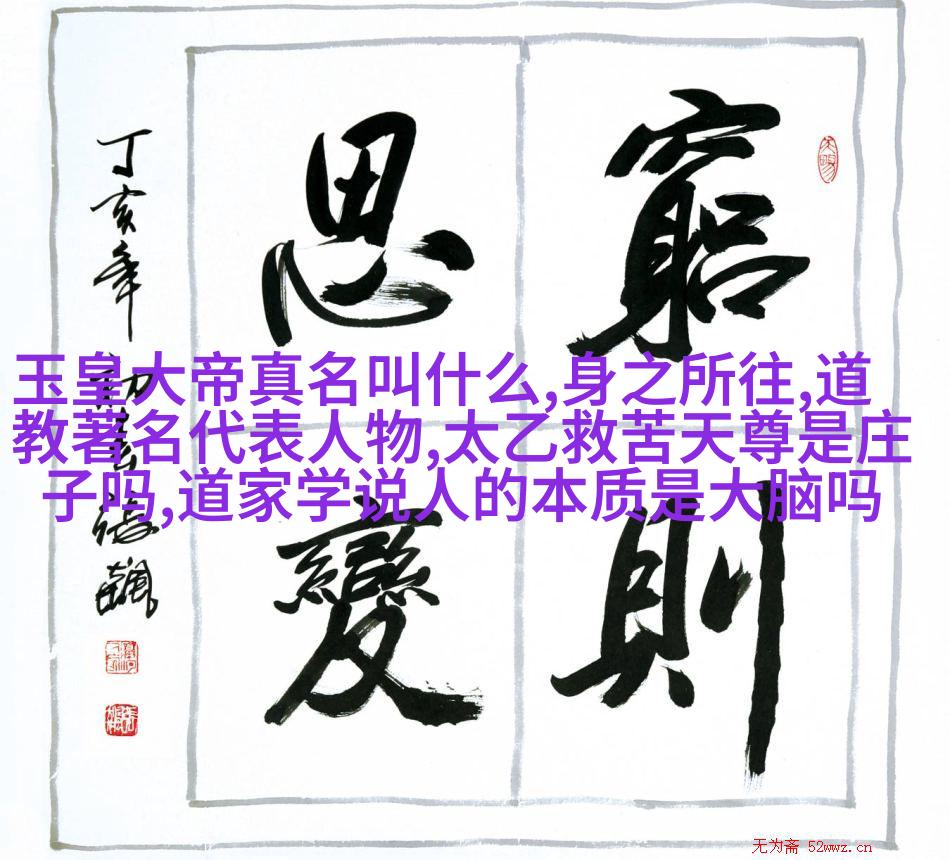 窮則
思變
丁亥年
玉皇大帝真名叫什么,身之所往,道
教著名代表人物,太乙救苦天尊是庄
子吗,道家学说人的本质是大脑吗
无为斋 52wwz.cn